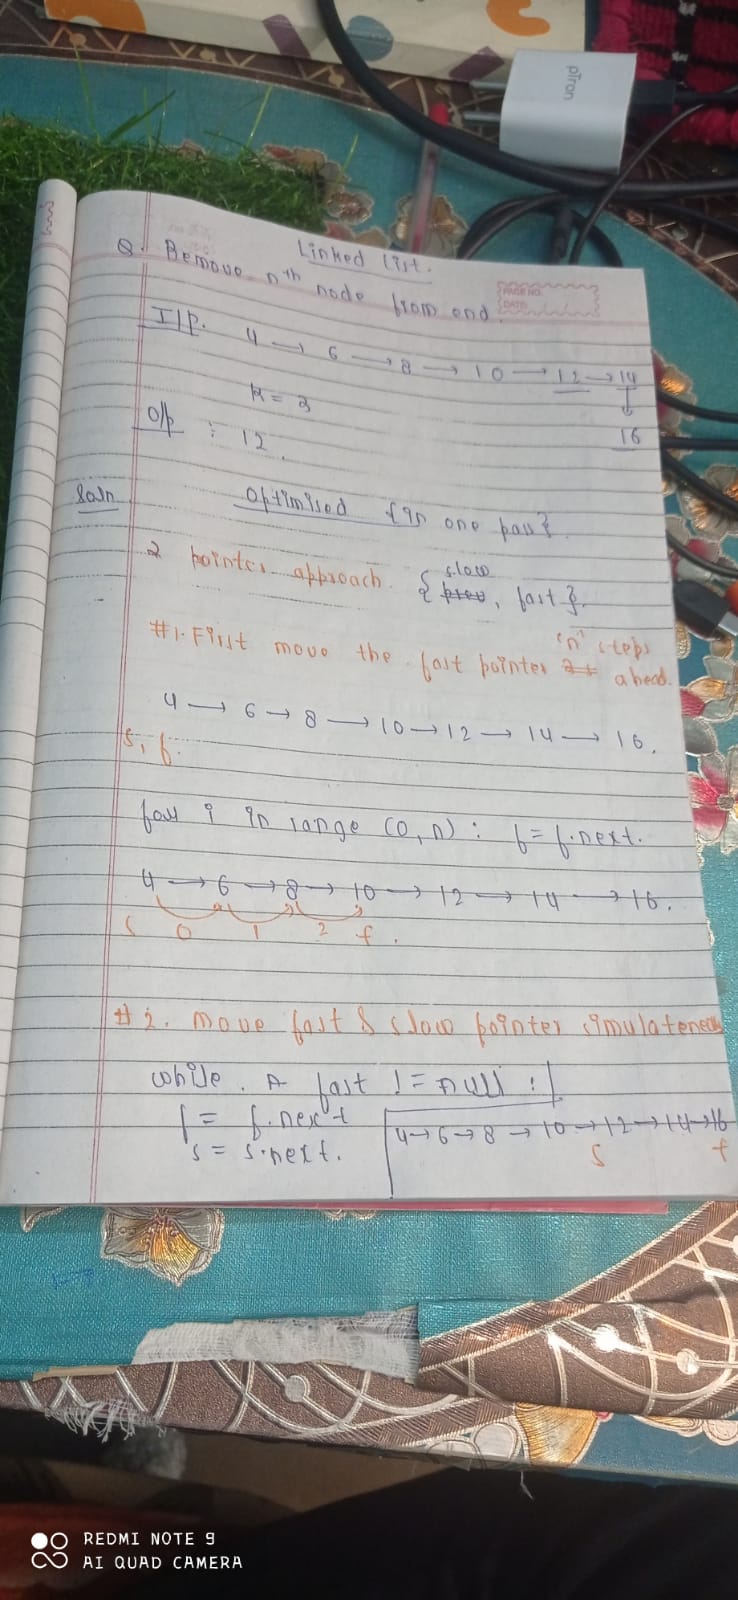 pTron
Linked List.
Q. Remove nth node from end.
PAGE NO.
DATE
I/p. 4 → 6 → 8 → 10 → 12 → 14
↓
16
K = 3
O/p : 12.
Soln Optimised {in one pass}.
2 pointer approach. {slow prev, fast}.
#1. First move the fast pointer 'n' steps ahead.
4 → 6 → 8 → 10 → 12 → 14 → 16.
s, f.
for i in range (0, n) : f = f.next.
4 → 6 → 8 → 10 → 12 → 14 → 16.
s 0 1 2 f.
#2. Move fast & slow pointer simulateneously
while. fast != null :
f = f.next
s = s.next.
4→6→8 → 10 → 12 → 14→16
s f
REDMI NOTE 9
AI QUAD CAMERA